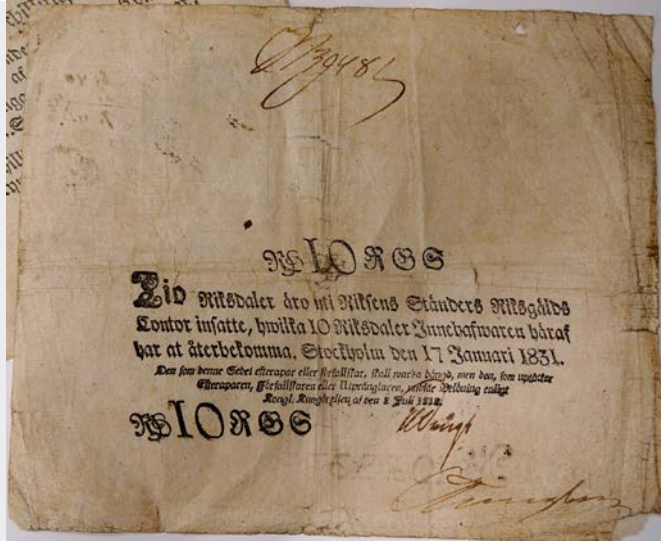 39481
Rd 10 RGS
Tio Riksdaler äro uti Riksens Ständers Riksgälds
Contor insatte, hwilka 10 Riksdaler Innehafwaren häraf
har at återbekomma. Stockholm den 17 Januari 1831.
Den som denne Sedel efterapar eller förfalskar, skall warda hängd, men den, som uptäcker
Efteraparen, Förfalskaren eller Utprånglaren, undfår Belöning enligt
Kongl. Kungörelsen af den 8 Juli 1818.
Rd 10 RGS